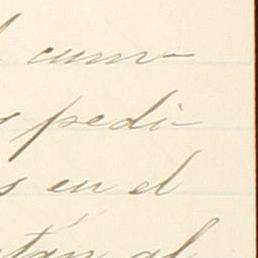 cum-
pedi-
s en el
tán al